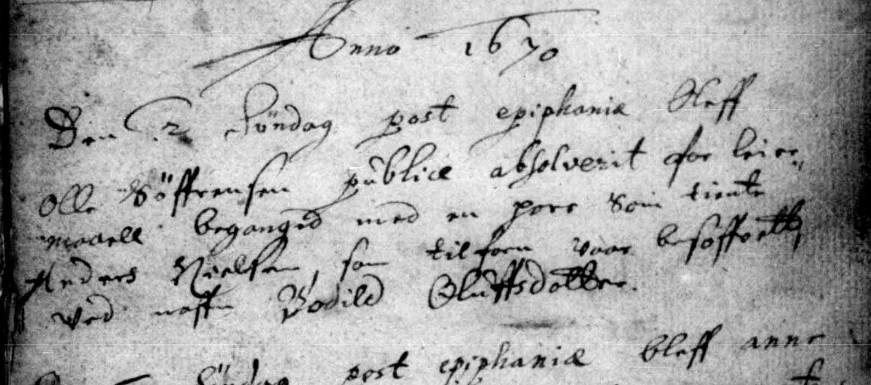 Anno 1670
Den 2 Söndag post epiphaniæ bleff
Olle Söffrensen publice absolverit for leier-
maaell beganged med en pors som tiente
Anders Nielsen, som tilforn vaar besoffvett,
ved naffn Bodild Oluffsdotter.
Söndag post epiphaniæ bleff anne